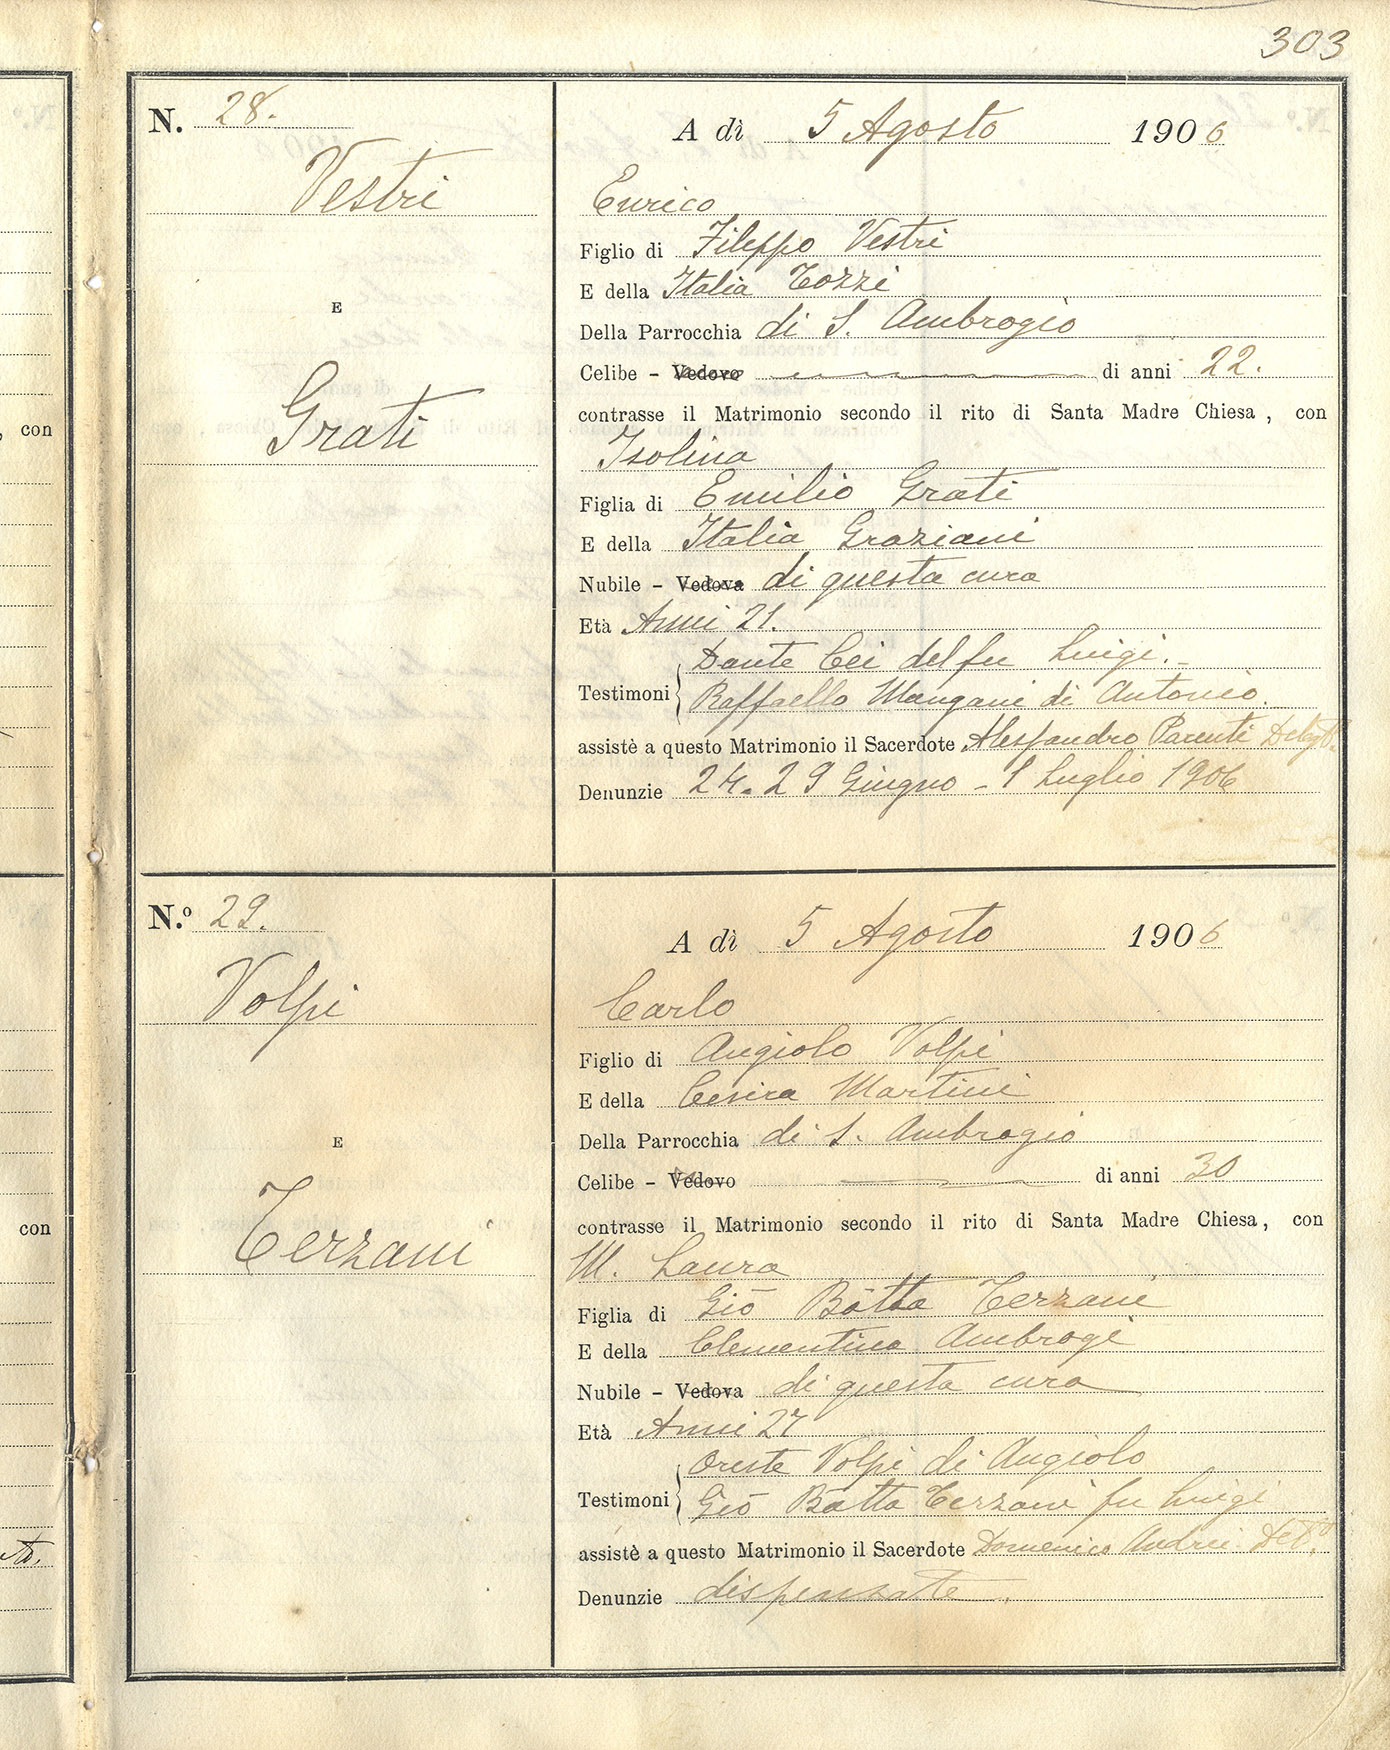 303
N. 28.
Vestri
E
Grati
A dì 5 Agosto 1906
Enrico
Figlio di Fileppo Vestri
E della Italia Tozzi
Della Parrocchia di S. Ambrogio
Celibe - Vedovo di anni 22.
contrasse il Matrimonio secondo il rito di Santa Madre Chiesa, con
Isolina
Figlia di Emilio Grati
E della Italia Graziani
Nubile - Vedova di questa cura
Età Anni 21.
Dante Cei del fu Luigi.
Testimoni
Raffaello Mangani di Antonio.
assistè a questo Matrimonio il Sacerdote Alessandro Parenti
Denunzie 24. 29 Giugno - 1 Luglio 1906
N.º 29.
Volpi
E
Terzani
A dì 5 Agosto 1906
Carlo
Figlio di Angiolo Volpi
E della Cesira Martini
Della Parrocchia di S. Ambrogio
Celibe - Vedovo di anni 30
contrasse il Matrimonio secondo il rito di Santa Madre Chiesa, con
M. Laura
Figlia di Gio Batta Terzani
E della Clementina Ambrogi
Nubile - Vedova di questa cura
Età Anni 27
Oreste Volpi di Angiolo
Testimoni
Gio Batta Terzani fu Luigi
assistè a questo Matrimonio il Sacerdote Domenico Andrei
Denunzie dispensate.
con
con